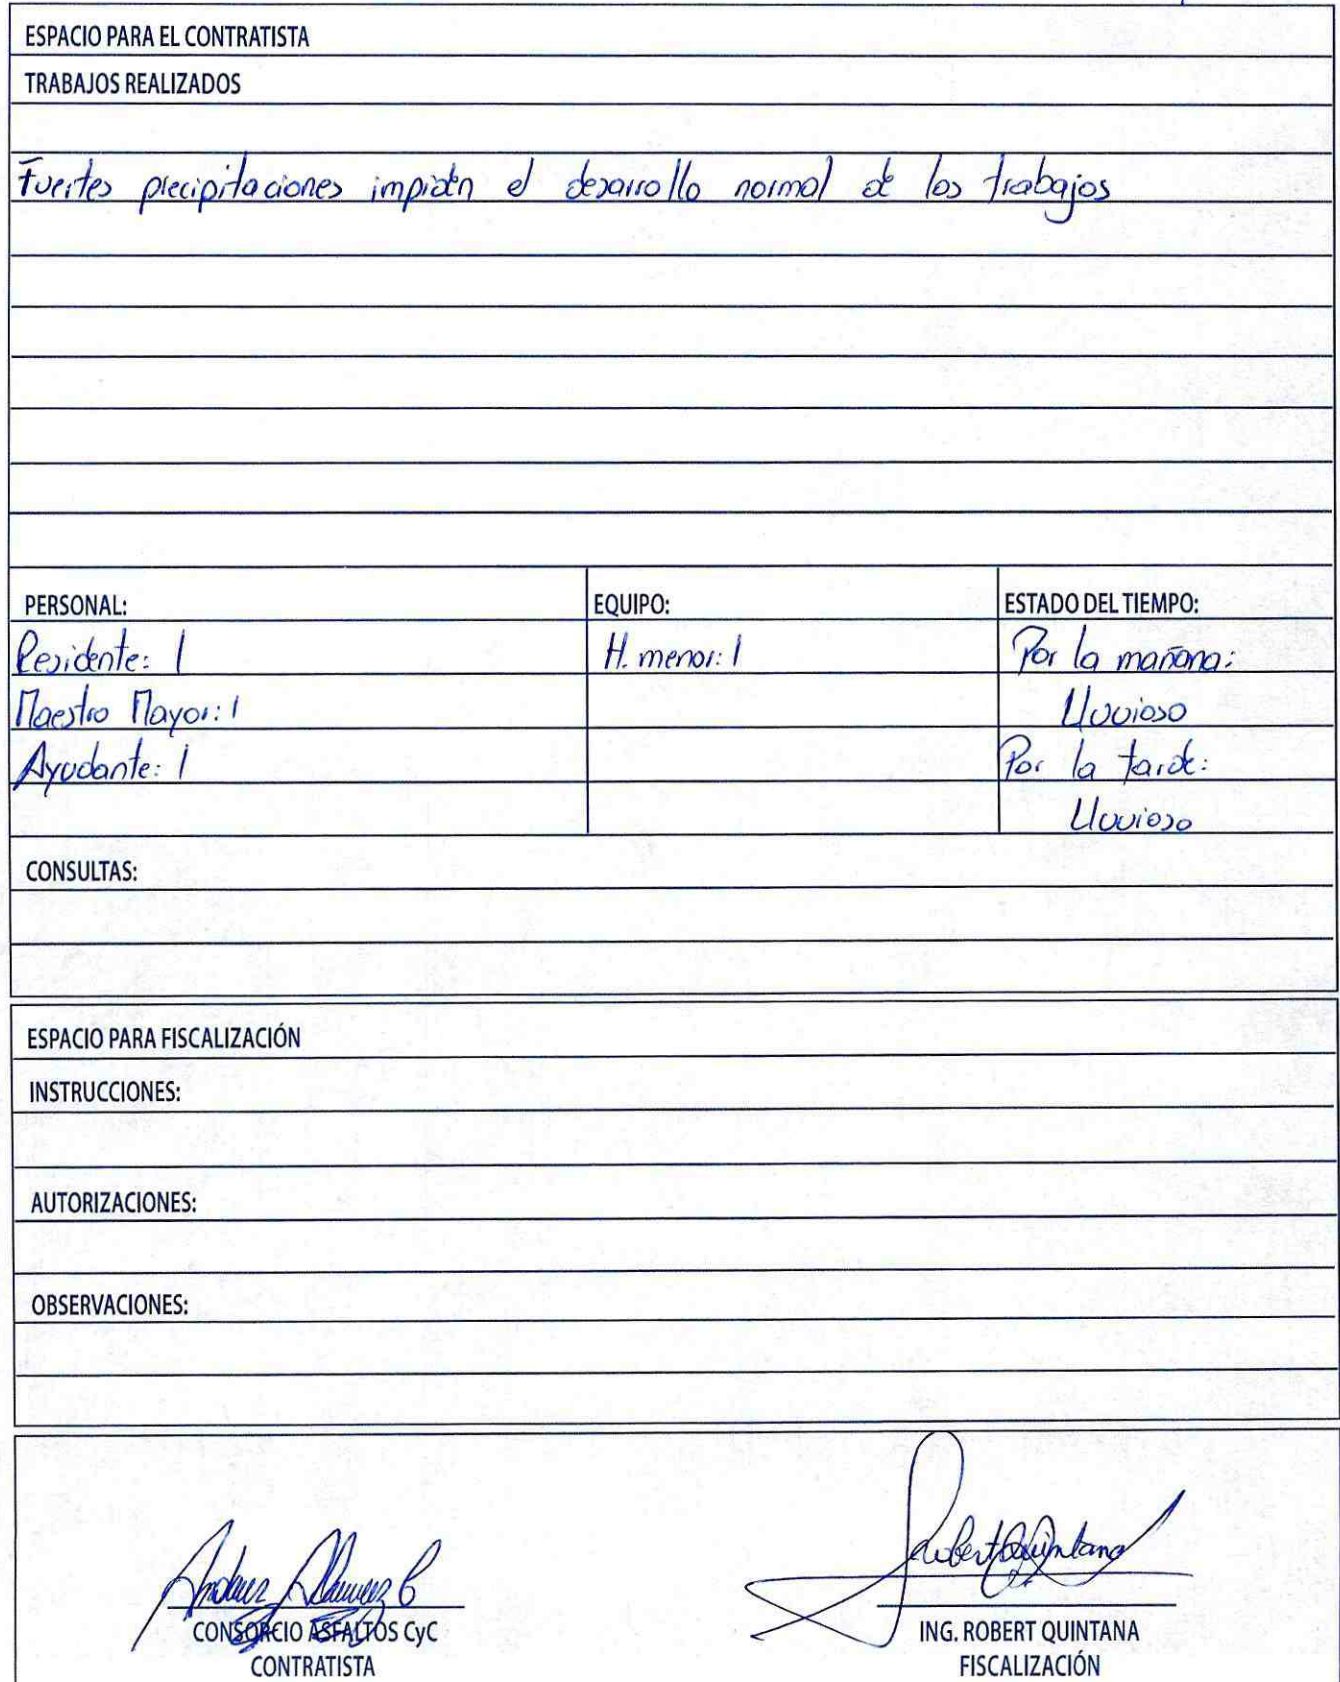 ESPACIO PARA EL CONTRATISTA
TRABAJOS REALIZADOS
Fuertes precipitaciones impiden el desarrollo normal de los trabajos
PERSONAL: EQUIPO: ESTADO DEL TIEMPO:
Residente: 1 H. menor: 1 Por la mañana:
Maestro Mayor: 1 Lluvioso
Ayudante: 1 Por la tarde:
Lluvioso
CONSULTAS:
ESPACIO PARA FISCALIZACIÓN
INSTRUCCIONES:
AUTORIZACIONES:
OBSERVACIONES:
Robert Quintana
CONSORCIO ASFALTOS CyC ING. ROBERT QUINTANA
CONTRATISTA FISCALIZACIÓN